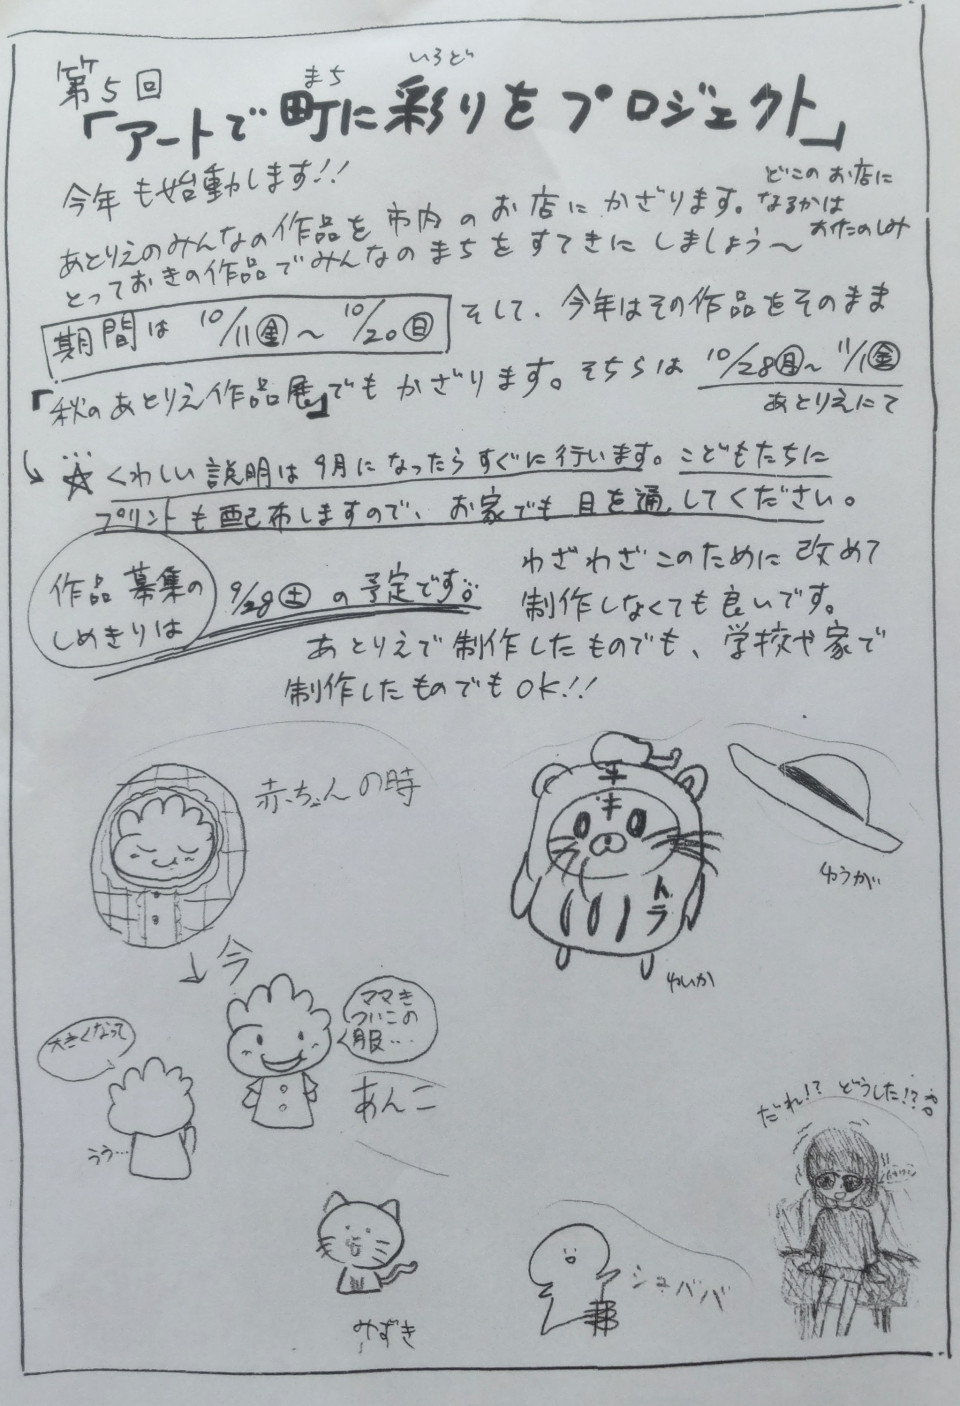 第5回
まち いろど
「アートで町に彩りをプロジェクト」
今年も始動します!!
あとりえのみんなの作品を市内のお店にかざります。
どこのお店に
なるかは
おたのしみ
とっておきの作品でみんなのまちをすてきにしましょう〜
期間は 10/11㊎〜10/20㊐
そして、今年はその作品をそのまま
「秋のあとりえ作品展」でもかざります。そちらは 10/28㊊〜11/1㊎
あとりえにて
☆くわしい説明は9月になったらすぐに行います。こどもたちに
プリントも配布しますので、お家でも目を通してください。
作品募集の
しめきりは
9/28㊏の予定です。
わざわざこのために改めて
制作しなくても良いです。
あとりえで制作したものでも、学校や家で
制作したものでもOK!!
赤ちゃんの時
トラ
ゆうが
↓今
れいか
ママき
ついこの
服…
大きくなって
あんこ
うう…
だれ!? どうした!?
みずき
シュババ